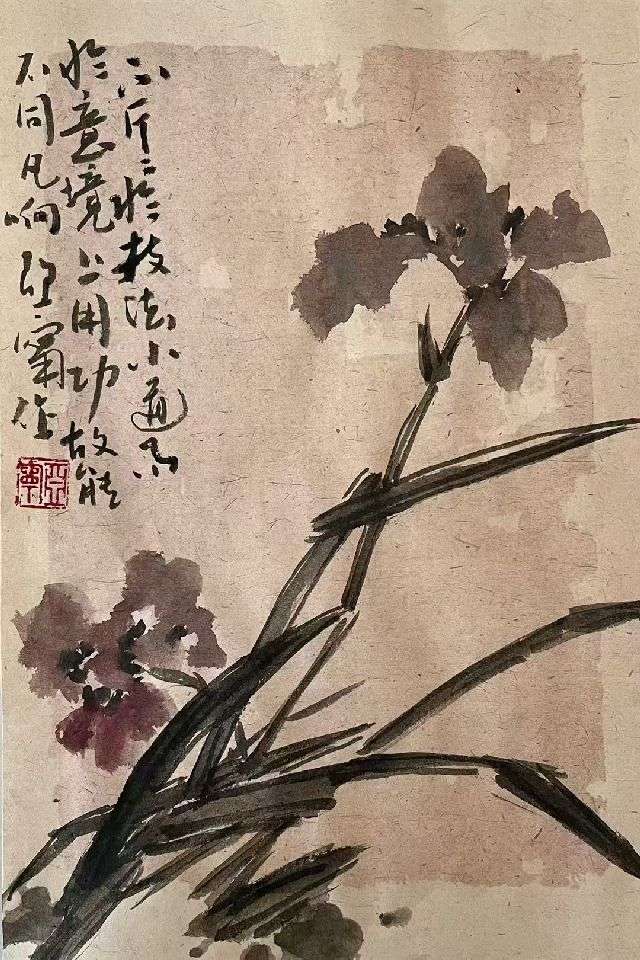 不斤〻於技法小道而
於意境上用功故能
不同凡响 亞寧作
亞寧